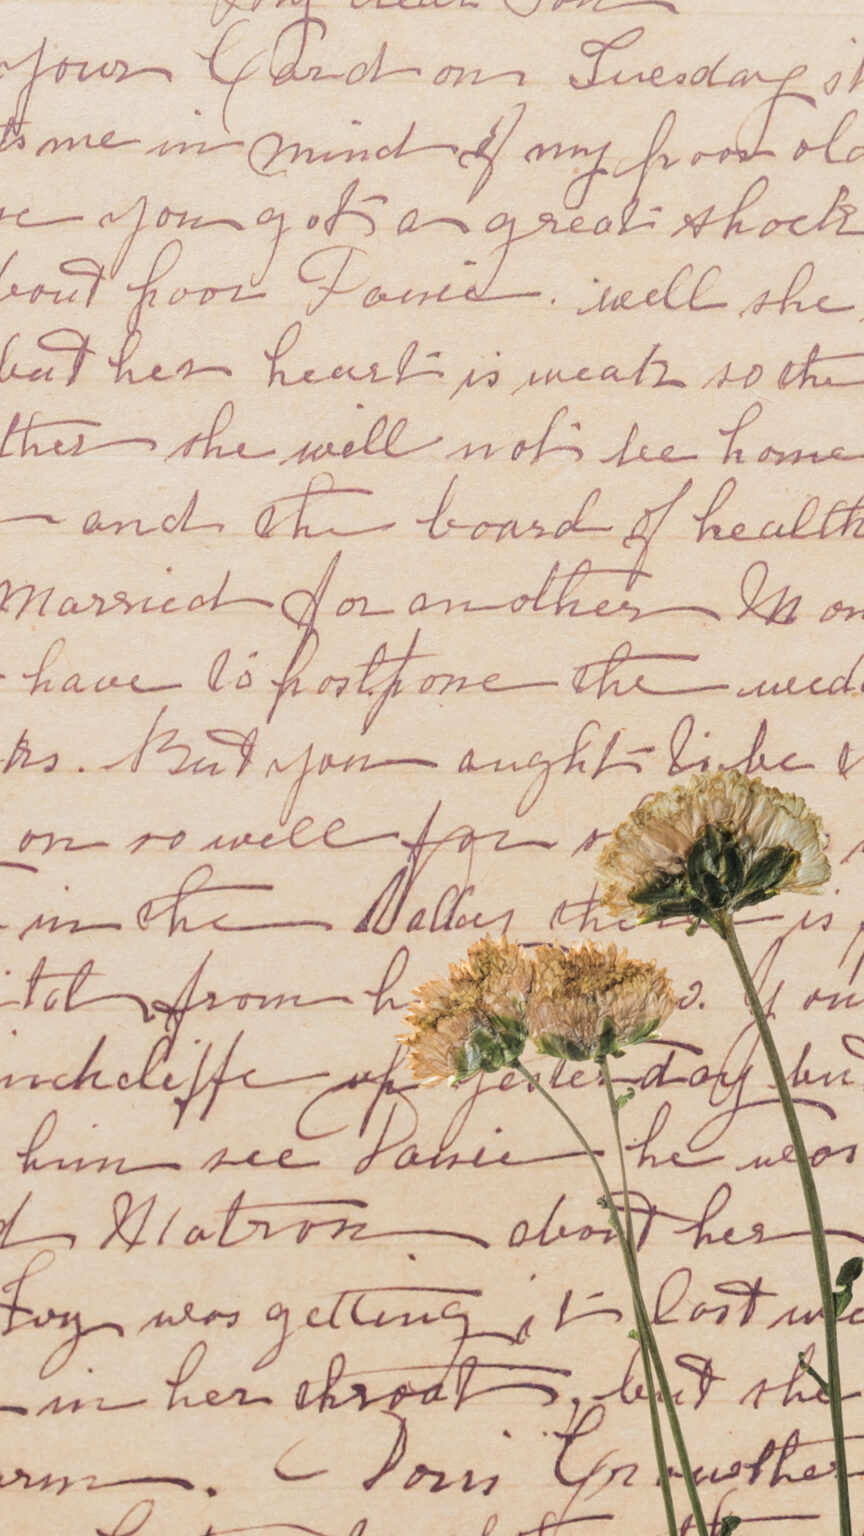 My dear Son
your Card on Tuesday it
ts me in mind of my poor old
you got a great shock
bout poor Fanie. well she
but her heart is weak so the
ther she will not be home
and the board of health
Married for another Mon
have to postpone the wedd
rs. But you aught to be
on so well for
in the Valley there is
ital from h
inchcliffe up yesterday but
him see Fanie he was
d Matron about her
Ivy was getting it last we
in her throat, but she
arm. Doris Growther